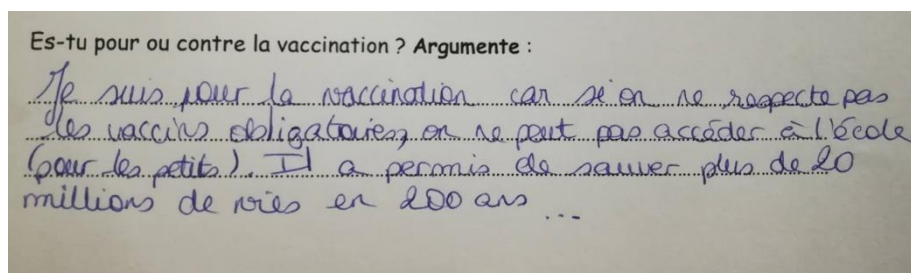 Es-tu pour ou contre la vaccination ? Argumente :
Je suis pour la vaccination car si on ne respecte pas
les vaccins obligatoires, on ne peut pas accéder à l'école
(pour les petits). Il a permis de sauver plus de 20
millions de vies en 200 ans ...